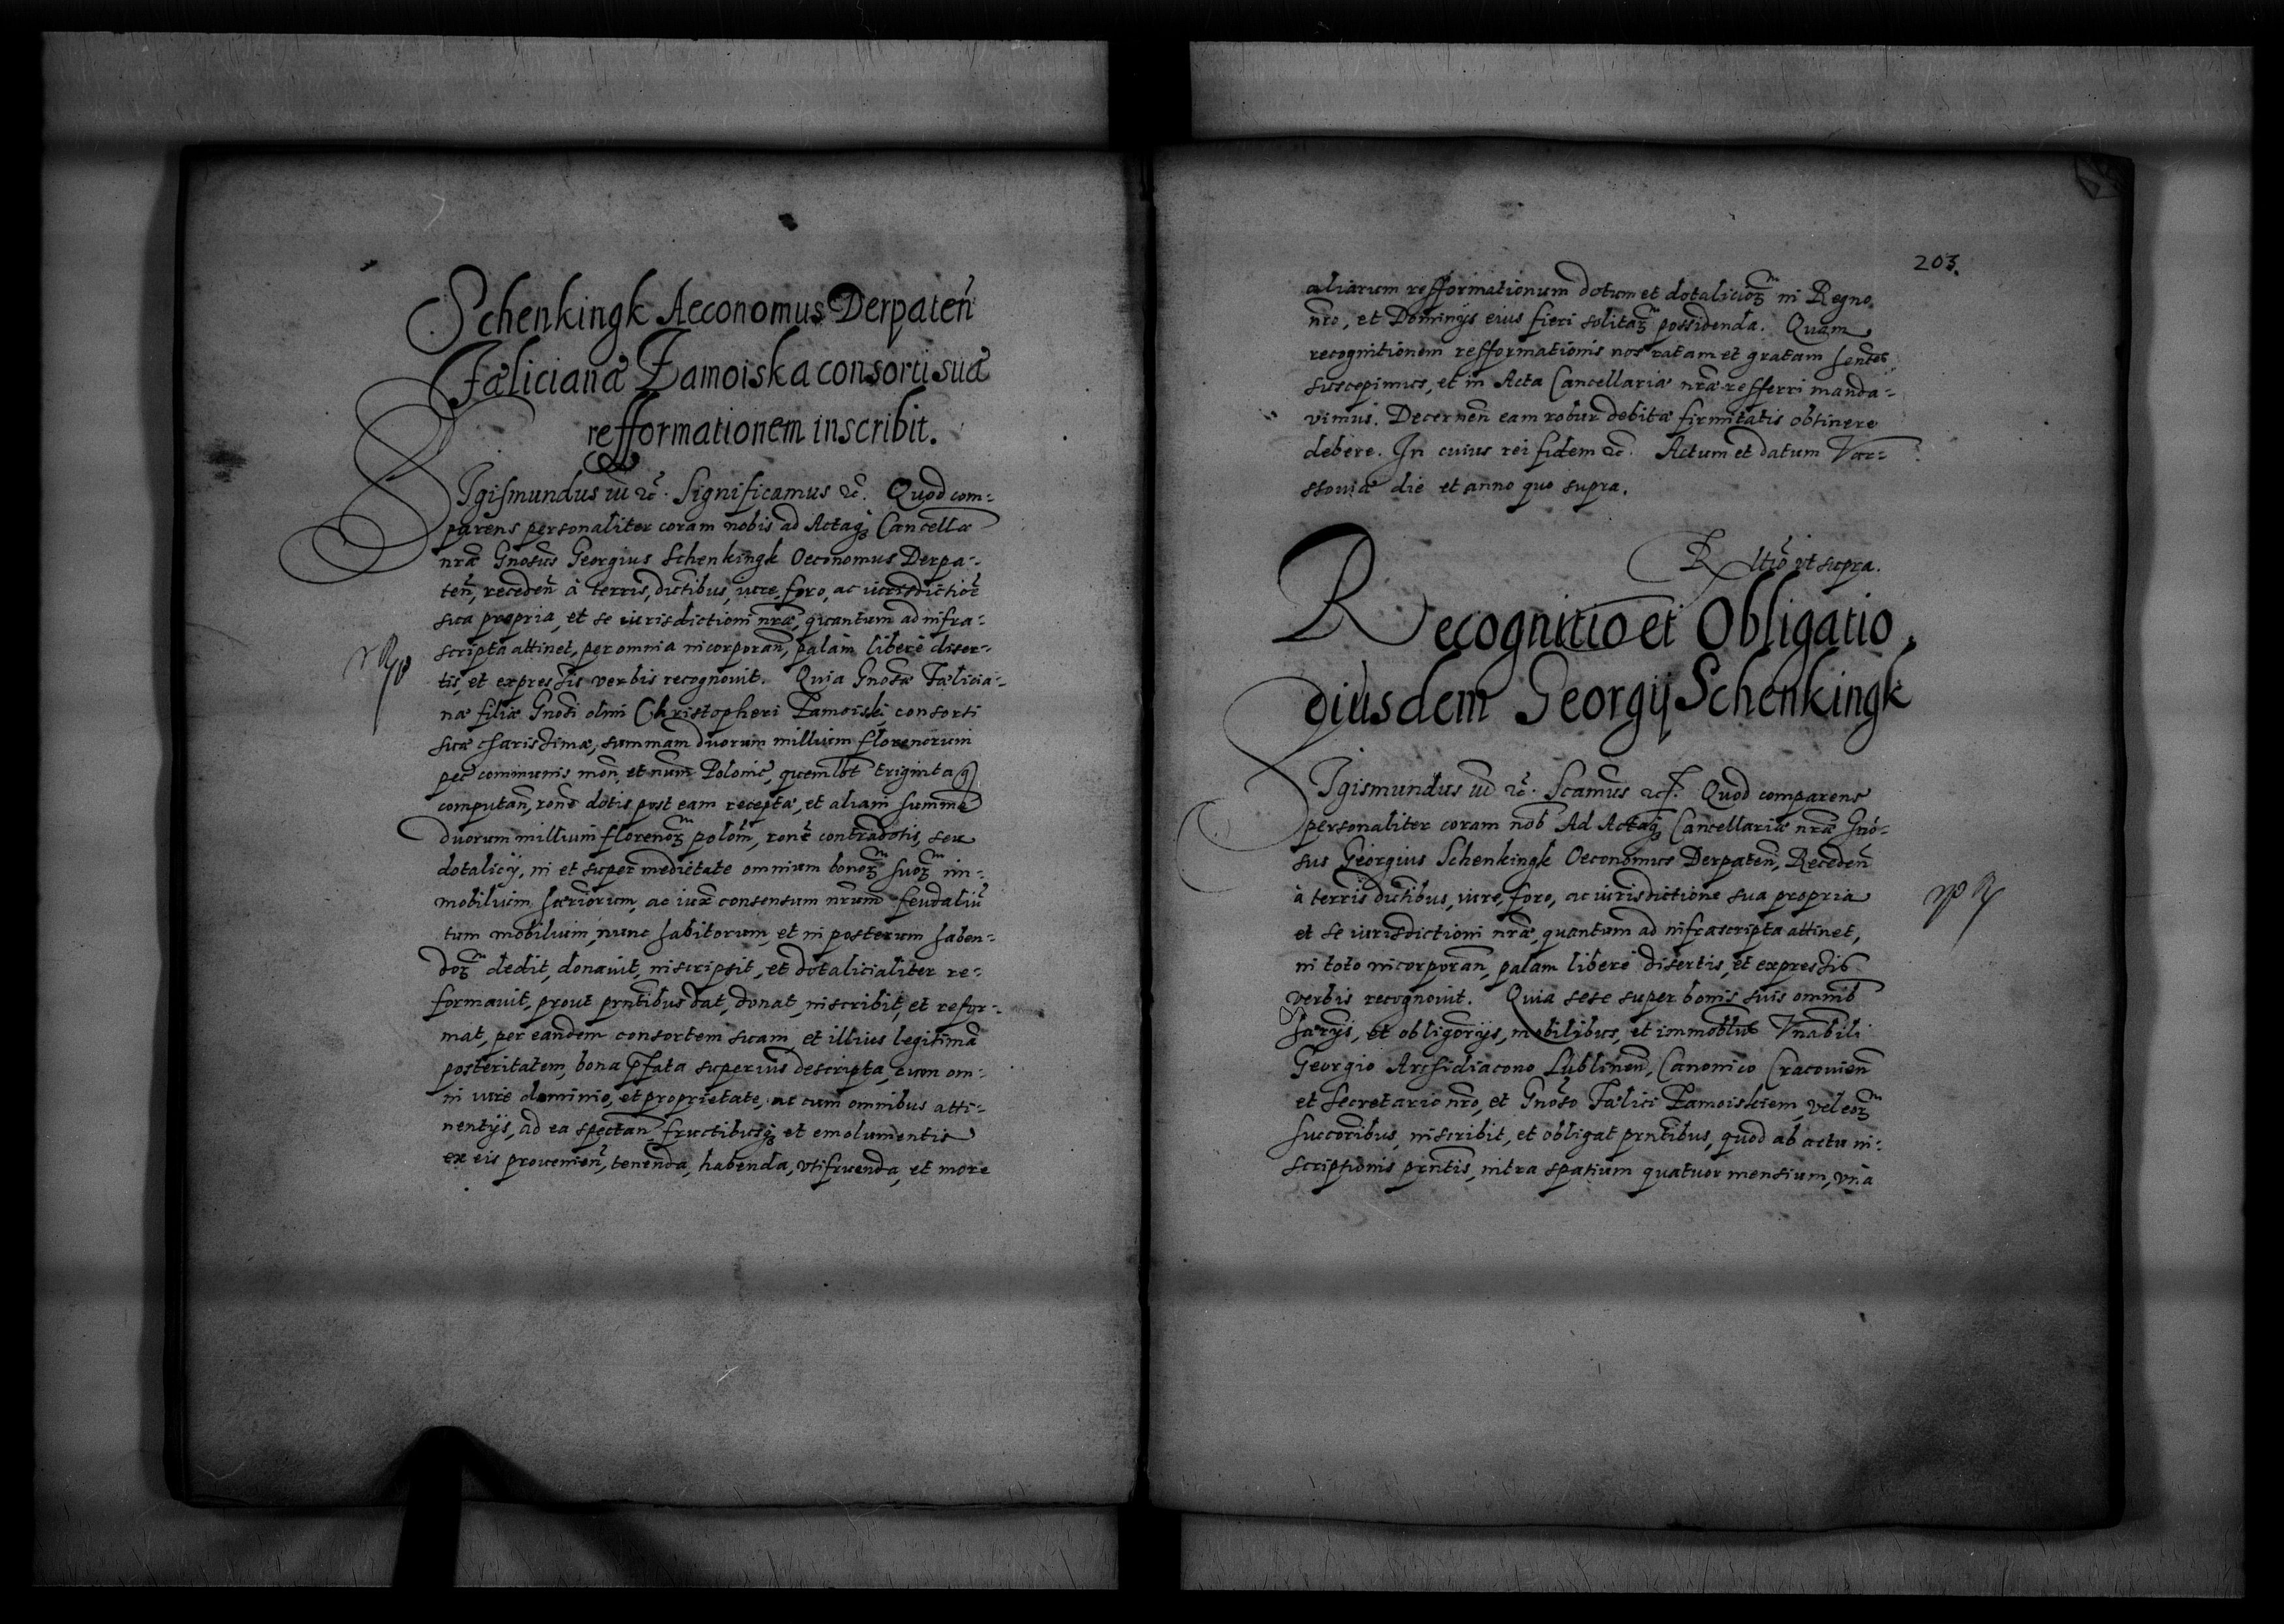 Schenkingk Aeconomus Derpateñ
Fælicianæ Zamoiska consorti suæ
refformationem inscribit.
Sigismundus iii &c. Significamus &c. Quod com=
parens personaliter coram nobis ad Actaq; Cancellæ
nræ Gnosus Georgius Schenkingk Oeconomus Derpa=
teñ, recedeñ à terris, dictibus, iure, foro, ac iurisdictioe
sua propria, et se iurisdictioni nræ, quantum ad infra=
scripta attinet, per omnia incorporañ, palam liberè diser=
tis, et expressis verbis recognovit. Quia Gnosæ Fælicia=
næ filiæ Gnosi olim Christopheri Zamoiski, consorti
suæ charissimæ, summam duorum millium florenorum
pec communis moñ, et num Polonic, quemlbt triginta g
computañ, rone dotis post eam receptæ, et aliam summã
duorum millium florenoꝝ poloñ, rone contradotis, seu
dotalicij, in et super medietate omnium bonoꝝ suoꝝ im=
mobilium, hæriorum, ac iux consensum nrum feudaliũ
tum mobilium, nunc habitorum, et in posterum haben=
doꝝ dedit, donavit, inscripsit, et dotalicialiter re=
formavit, prout pntibus dat, donat, inscribit, et refor=
mat, per eandem consortem suam, et illius legitimã
posteritatem, bona pfata superius descripta, cum om=
ni iure dominio, et proprietate, ac cum omnibus atti=
nentijs, ad ea spectañ, fructibusq; et emolumentis
ex eis provenieñ, tenenda, habenda, utifruenda, et more
203.
aliarum refformationum dotum et dotalicioꝝ in Regno
nro, et Dominijs eius fieri solitaꝝ possidenda. Quam
recognitionem refformationis nos ratam et gratam hentes
suscepimus, et in Acta Cancellariæ nræ refferri manda=
vimus. Decerneñ eam robur debitæ firmitatis obtinere
debere. In cuius rei fidem &c. Actum et datum Var=
ssoviæ die et anno quo supra.
Rltio ut supra.
Recognitio et Obligatio,
eiusdem Georgij Schenkingk
Sigismundus iii &c. Scamus &c. Quod comparens
personaliter coram nob Ad Actaq; Cancellariæ nræ Gno=
sus Georgius Schenkingk Oeconomus Derpateñ, Recedeñ
à terris dictibus, iure, foro, ac iurisdictione sua propria
et se iurisdictioni nræ, quantum ad infrascripta attinet,
in toto incorporañ, palam liberè disertis, et expressis
verbis recognovit. Quia sese super bonis suis omnib
hærijs, et obligorijs, mobilibus, et immoblbus Vnabili
Georgio Archidiacono Lublineñ, Canonico Cracovieñ
et Secretario nro, et Gnoso Fælici Zamoisciem, vel eoꝝ
succoribus, inscribit, et obligat pntibus, quod ab actu in=
scriptionis pntis, intra spatium quatuor mensium, unà